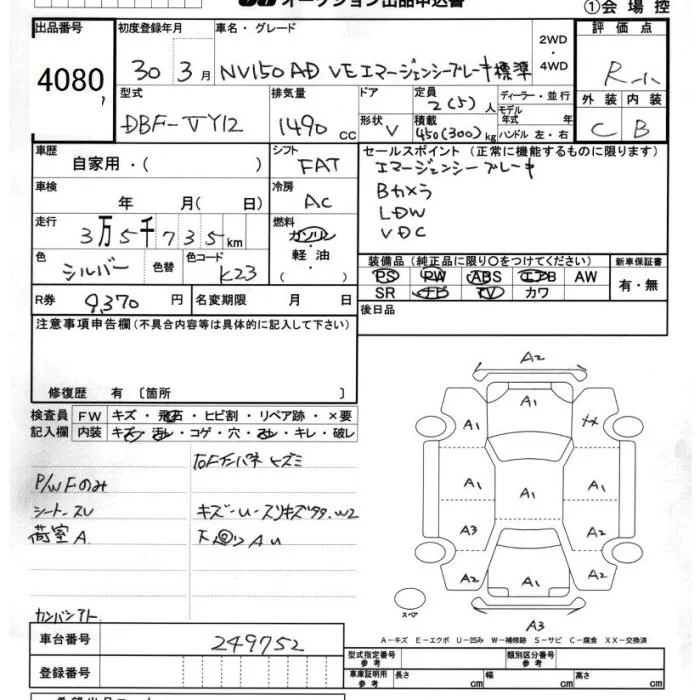 オークション出品申込書
①会場控
出品番号
4080
初度登録年月
30 3月
車名・グレード
NV150 AD VE エマージェンシーブレーキ標準
2WD・4WD
評価点
R
外装 内装
C B
型式
DBF-VY12
排気量
1490 cc
ドア
形状 V
定員
2(5)人
積載
450(300)kg
ディーラー・並行
モデル年式 年
ハンドル 左・右
車歴
自家用・( )
シフト
FAT
車検
年 月( 日)
冷房
AC
走行
3万5千735km
燃料
ガソリン
軽油
( )
色
シルバー
色替
色コード
K23
R券 9,370 円
名変期限 月 日
セールスポイント(正常に機能するものに限ります)
エマージェンシーブレーキ
Bカメラ
LDW
VDC
装備品(純正品に限り○をつけてください)
PS PW ABS エアB AW
SR ナビ TV カワ
新車保証書
有・無
後日品
注意事項申告欄(不具合内容等は具体的に記入して下さい)
修復歴 有 〔箇所 〕
検査員記入欄
FW キズ・飛石・ヒビ割・リペア跡・×要
内装 キズ・汚レ・コゲ・穴・スレ・キレ・破レ
P/W Fのみ
シート スU
荷室 A
カンバンアト
A2
A1
A1
A1
A1
A1
A3
A2
A2
A2
A1
A3
スペア
A-キズ E-エクボ U-凹み W-補修跡 S-サビ C-腐食 XX-交換済
車台番号 249752
登録番号
型式指定番号 参考
類別区分番号 参考
車庫証明用 参考 長さ cm 幅 cm 高さ cm